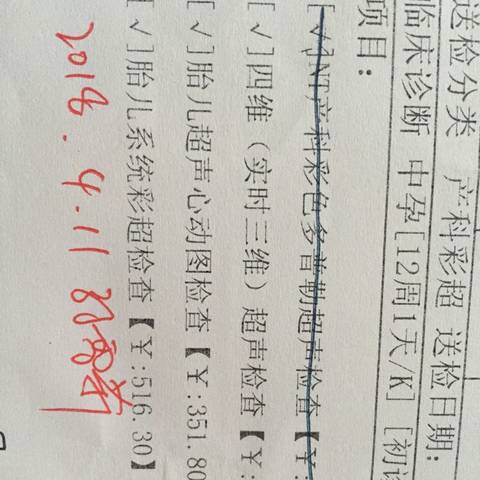 送检分类 产科彩超 送检日期:
临床诊断 中孕[12周1天/K] [初诊
项目:
[√]NT产科彩色多普勒超声检查【¥:
[√]四维（实时三维）超声检查【¥:
[√]胎儿超声心动图检查【¥:351.80
[√]胎儿系统彩超检查【¥:516.30】
2018.4.11